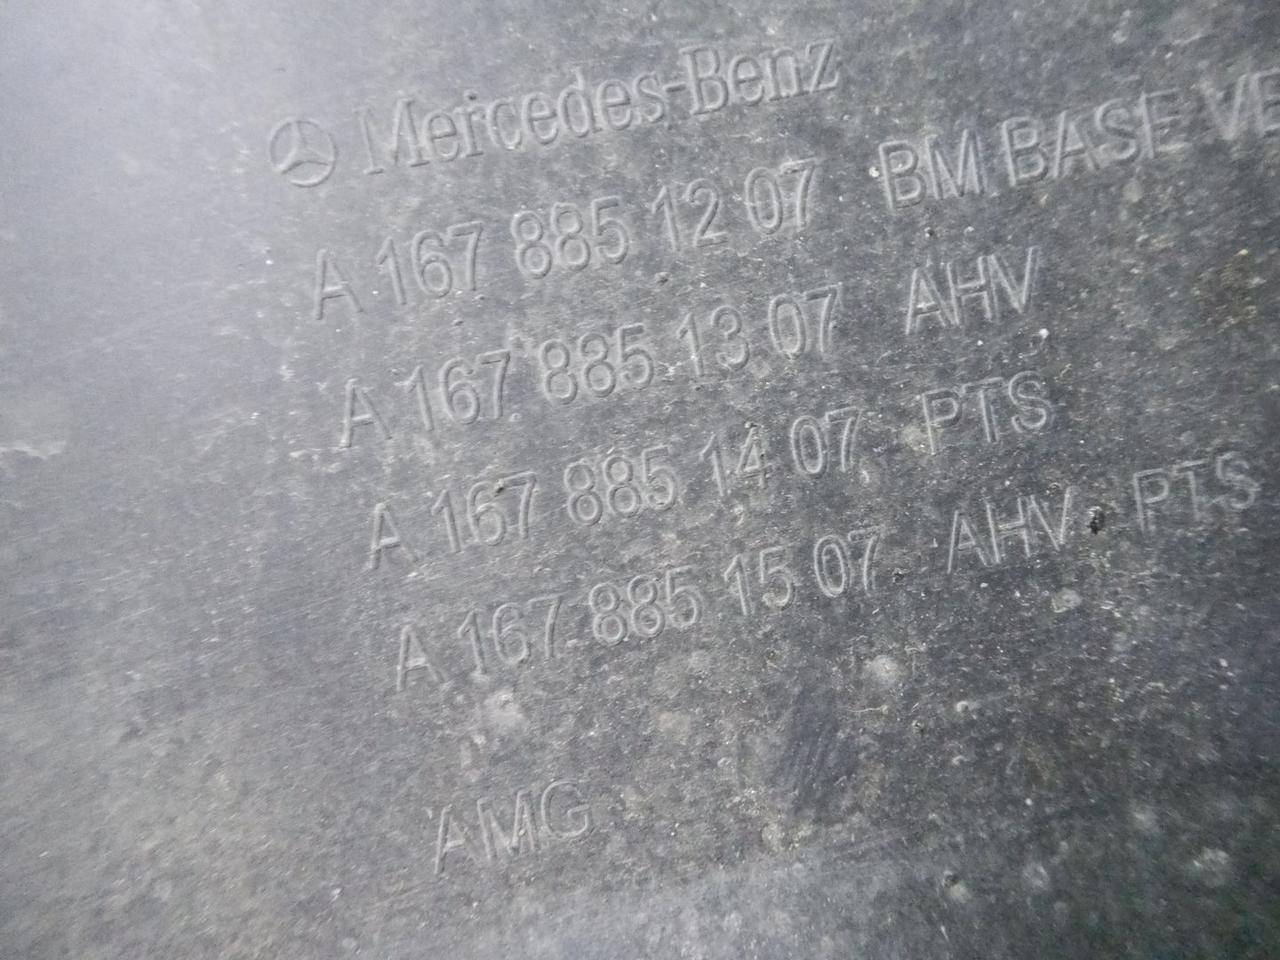 Mercedes-Benz
A 167 885 12 07 BM BASE VE
A 167 885 13 07 AHV
A 167 885 14 07 PTS
A 167 885 15 07 AHV PTS
AMG